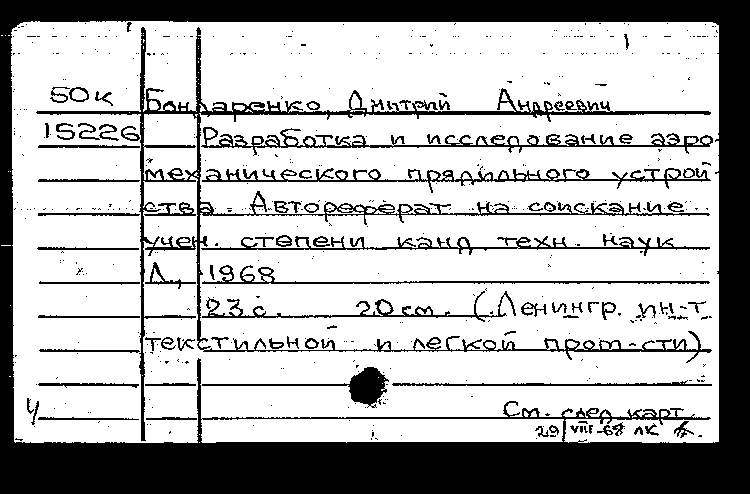 50к Бондаренко, Дмитрий Андреевич
15226 Разработка и исследование аэро-
механического прядильного устрой-
ства. Автореферат на соискание
учен. степени канд техн. наук
Л., 1968
23 с. 20 см. (Ленингр. ин-т
текстильной и легкой пром-сти)
См. след. карт.
29/VIII-68 ЛК